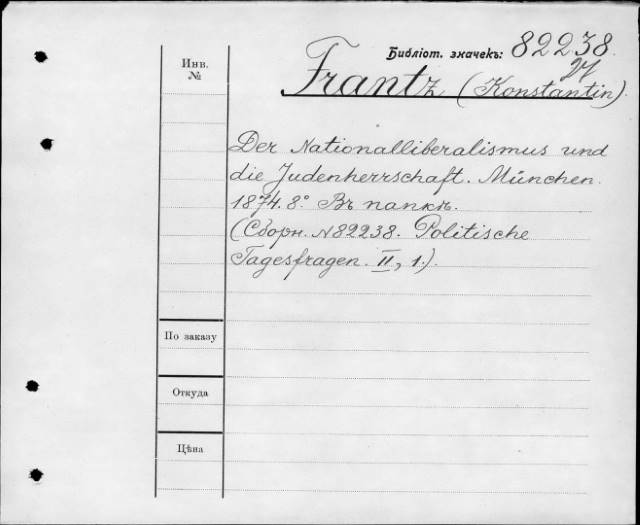 Библіот. значекъ: 82238
27
Инв.
№
Frantz (Konstantin).
Der Nationalliberalismus und
die Judenherrschaft. München.
1874. 8º. Въ папкѣ.
(Сборн. №82238. Politische
Tagesfragen. II, 1.).
По заказу
Откуда
Цѣна